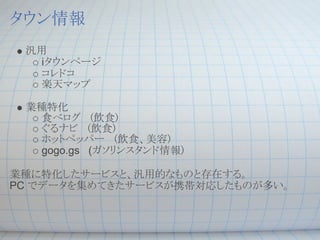 タウン情報
● 汎用
○ iタウンページ
○ コレドコ
○ 楽天マップ
● 業種特化
○ 食べログ （飲食）
○ ぐるナビ （飲食）
○ ホットペッパー （飲食、美容）
○ gogo.gs （ガソリンスタンド情報）
業種に特化したサービスと、汎用的なものと存在する。
PC でデータを集めてきたサービスが携帯対応したものが多い。